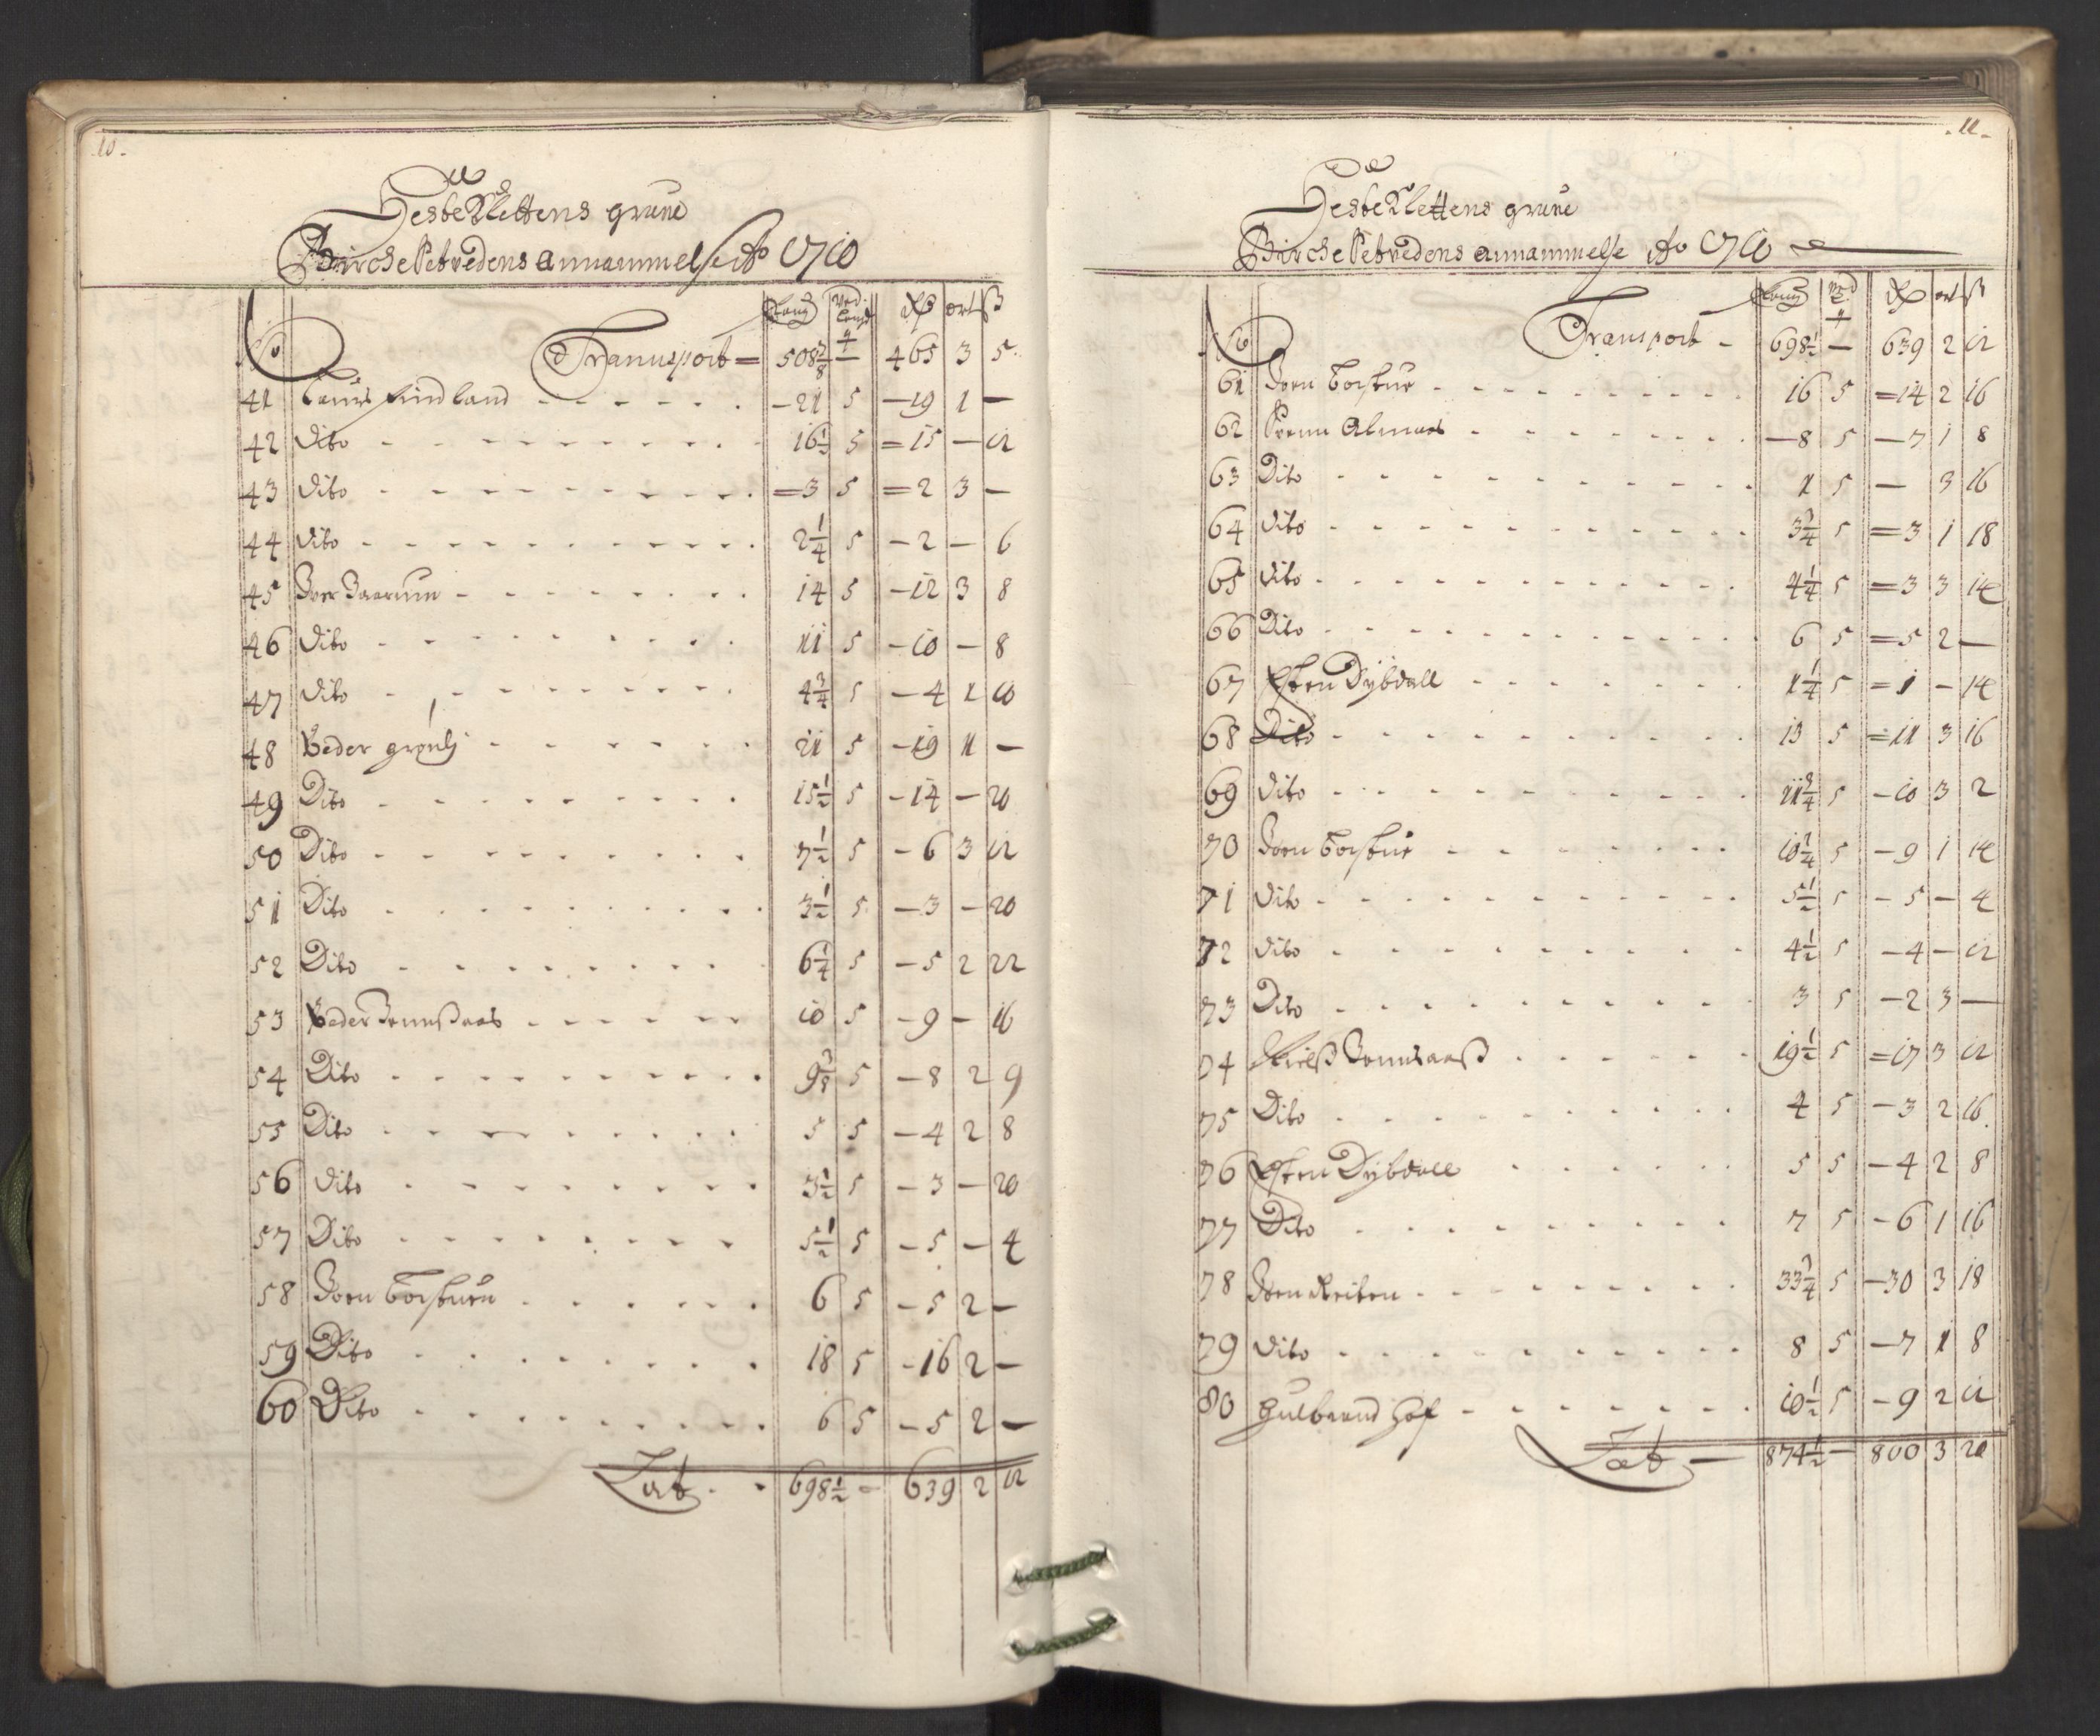 10.
Hestekletens grube
Bircke Vedens annammelse Ao 1710
fauf Ved Lengd Rdr ort ß
No Transport = 508 3/8 — 465 3 5
41 Laurs Lindland - 21 5 - 19 1 —
42 Dito 16 1/2 5 = 15 — 12
43 Dito = 3 5 = 2 3 —
44 Dito 2 1/4 5 - 2 — 6
45 Iver 14 5 - 12 3 8
46 Dito 11 5 - 10 — 8
47 Dito 4 3/4 5 - 4 1 10
48 Peder grønli 21 5 - 19 1 —
49 Dito 15 1/2 5 - 14 — 20
50 Dito 7 1/2 5 - 6 3 12
51 Dito 3 1/2 5 - 3 — 20
52 Dito 6 1/4 5 - 5 2 22
53 Peder 10 5 - 9 — 16
54 Dito 9 3/8 5 - 8 2 9
55 Dito 5 5 - 4 2 8
56 Dito 3 1/2 5 - 3 — 20
57 Dito 5 1/2 5 - 5 — 4
58 Joen 6 5 - 5 2 —
59 Dito 18 5 - 16 2 —
60 Dito 6 5 - 5 2 —
Lat 698 1/2 = 639 2 12
11.
Hestekletens grube
Bircke Vedens annammelse Ao 1710
fauf Ved L Rdr ort ß
No Transport - 698 1/2 — 639 2 12
61 Joen 16 5 = 14 2 16
62 Almaas — 8 5 - 7 1 8
63 Dito 1 5 — 3 16
64 Dito 3 3/4 5 = 3 1 18
65 Dito 4 1/4 5 = 3 3 14
66 Dito 6 5 = 5 2 —
67 Esten Dybdall 1 1/4 5 = 1 - 14
68 Dito 13 5 = 11 3 16
69 Dito 11 3/4 5 - 10 3 2
70 Joen 10 1/4 5 - 9 1 14
71 Dito 5 1/2 5 - 5 — 4
72 Dito 4 1/2 5 - 4 — 12
73 Dito 3 5 - 2 3 —
74 Nielß 19 1/2 5 = 17 3 12
75 Dito 4 5 - 3 2 16
76 Esten Dybdall 5 5 - 4 2 8
77 Dito 7 5 - 6 1 16
78 Joen Reiten 33 3/4 5 - 30 3 18
79 Dito 8 5 - 7 1 8
80 Gulbrand Hof 10 1/2 5 - 9 2 12
Lat — 874 1/2 — 800 3 20